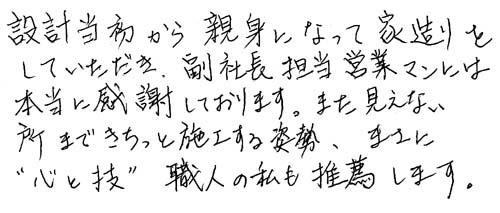 設計当初から親身になって家造りを
していただき、副社長担当営業マンには
本当に感謝しております。また見えない
所まできちっと施工する姿勢、まさに
"心と技" 職人の私も推薦します。